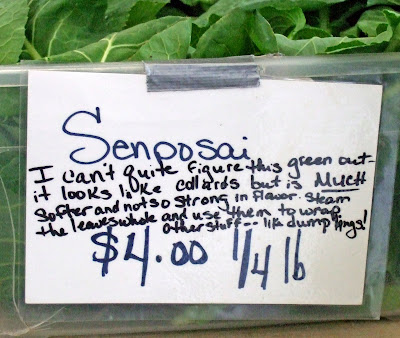 Senposai
I can't quite figure this green out-
it looks like collards but is MUCH
softer and not so strong in flavor. steam
the leaves whole and use them to wrap
other stuff-- like dumplings!
$4.00 1/4 lb